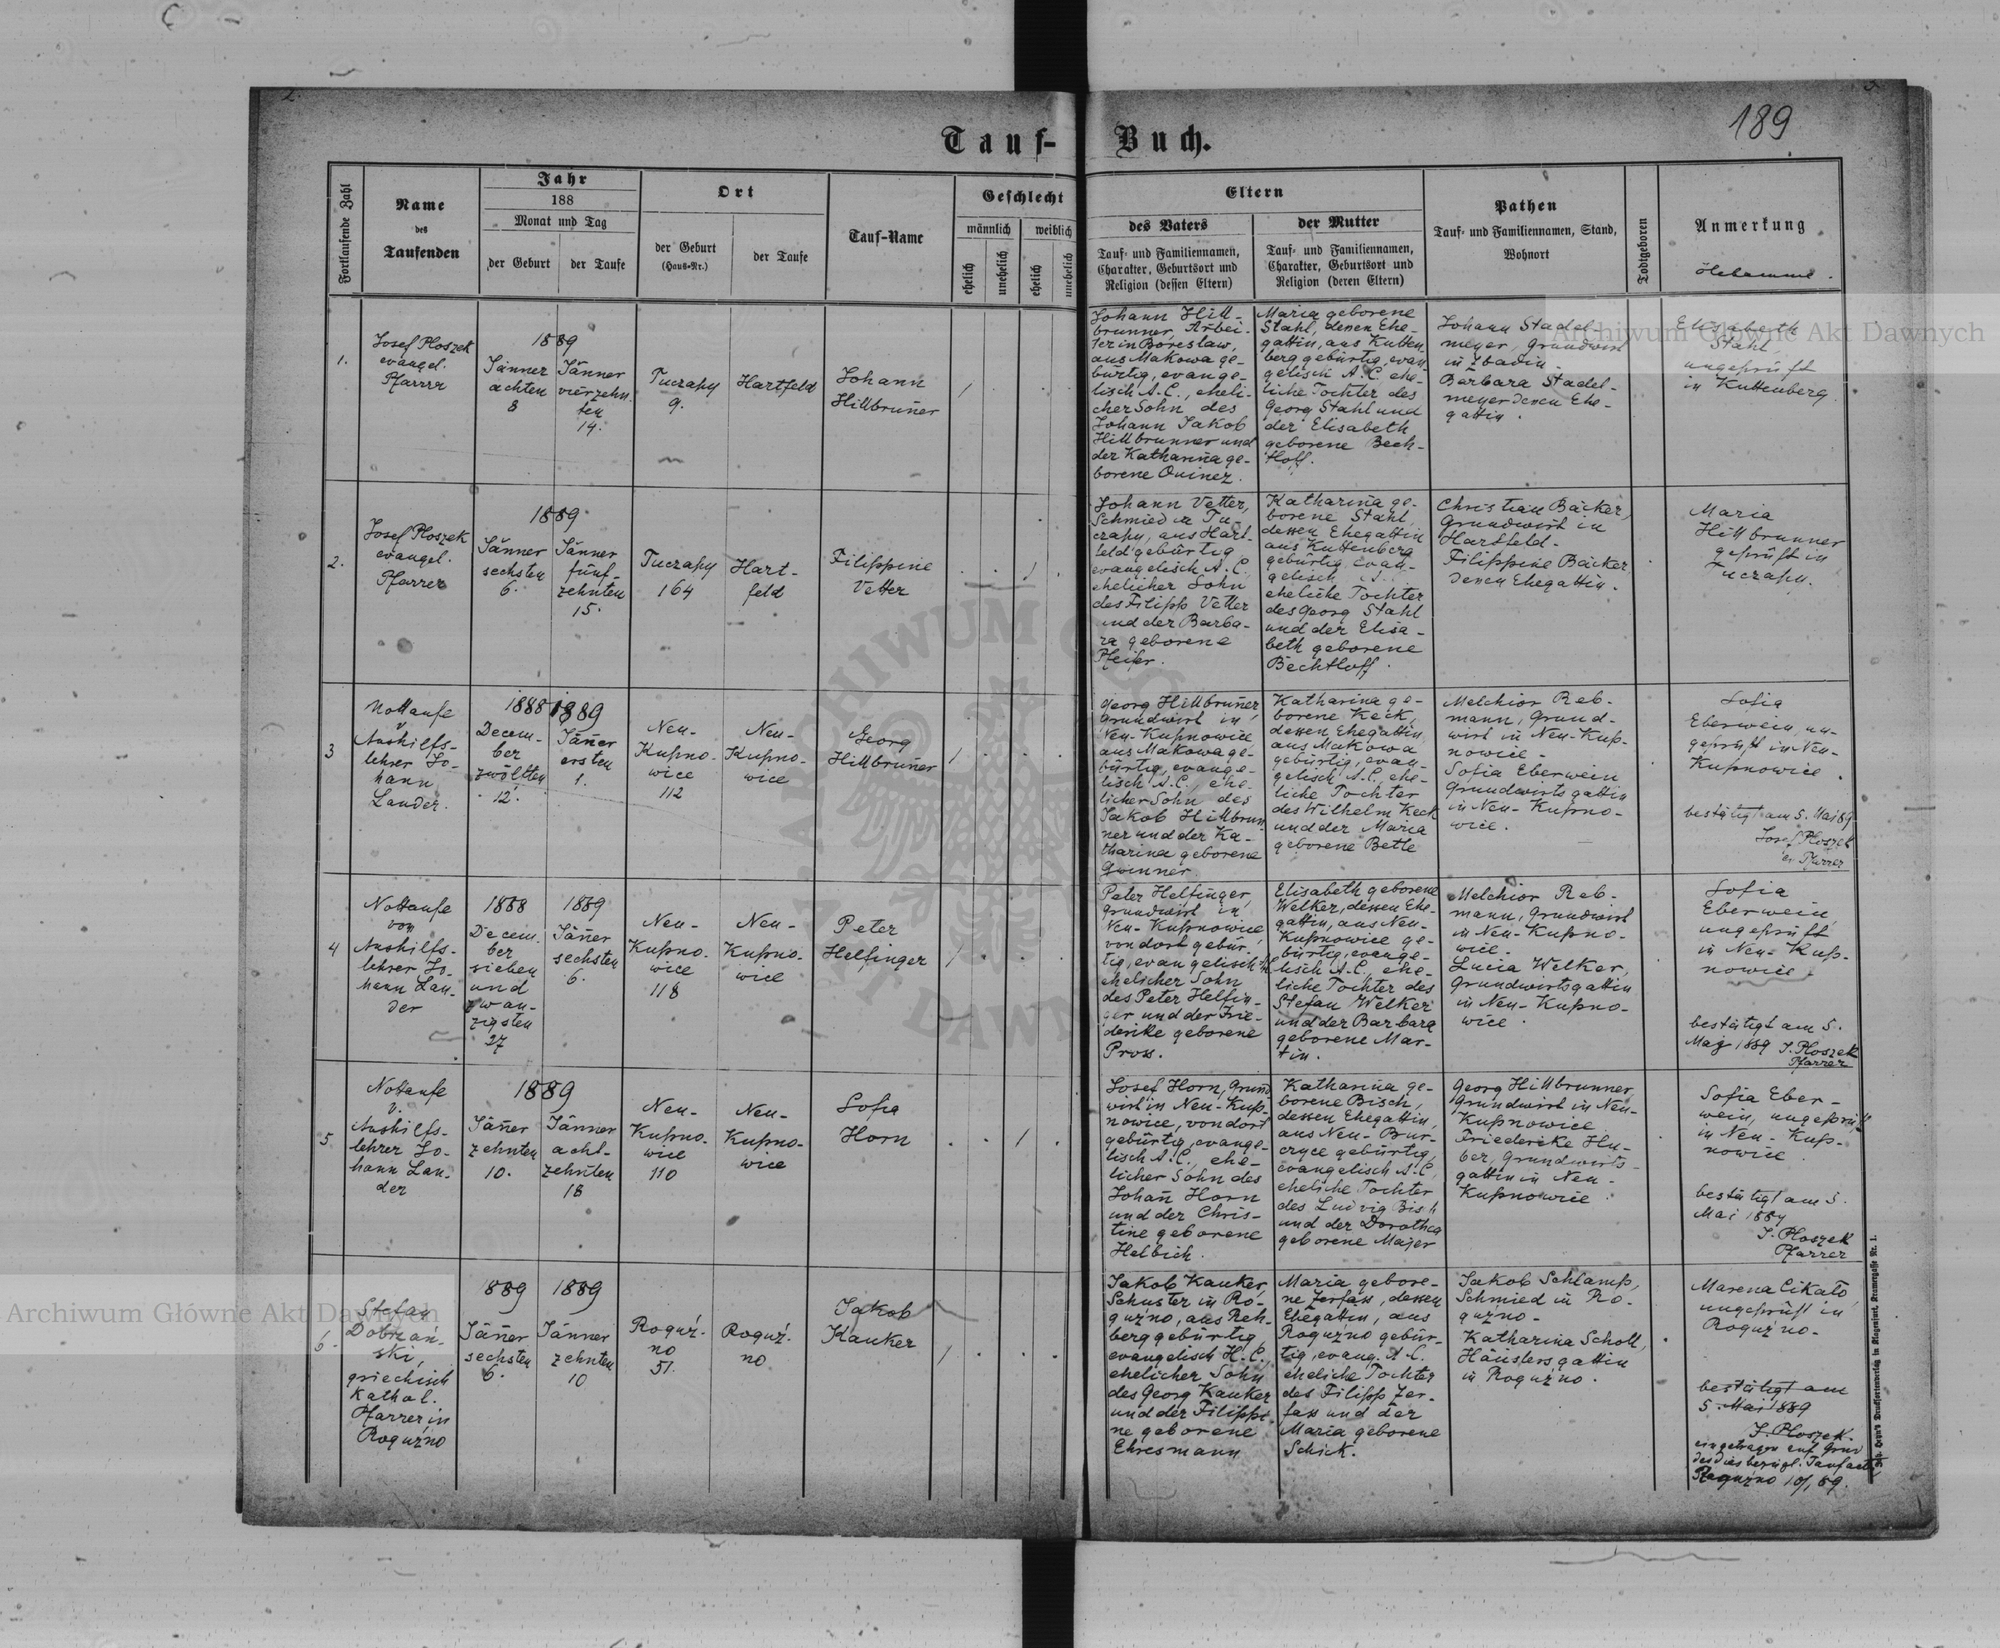 189
Tauf- Buch.
Fortlaufende Zahl
Name
des
Taufenden
Jahr
188
Monat und Tag
der Geburt
der Taufe
Ort
der Geburt
(Haus-Nr.)
der Taufe
Tauf-Name
Geschlecht
männlich
weiblich
ehelich
unehelich
ehelich
unehelich
Eltern
des Vaters
Tauf- und Familiennamen,
Charakter, Geburtsort und
Religion (dessen Eltern)
der Mutter
Tauf- und Familiennamen,
Charakter, Geburtsort und
Religion (deren Eltern)
Pathen
Tauf- und Familiennamen, Stand,
Wohnort
Todtgeboren
Anmerkung
1.
Josef Ploszek
evangel.
Pfarrer
1889
Jänner
achten
8
Jänner
vierzehn
ten
14.
Tuczapy
9.
Hartfeld
Johann
Hillbruner
Johann Hill-
brunner, Arbei-
ter in Boreslaw,
aus Makowa ge-
bürtig, evange-
lisch A.C., eheli-
cher Sohn des
Johann Jakob
Hillbrunner und
der Katharina ge-
borene Quinez.
Maria geborene
Stahl, denen Ehe-
gattin, aus Kutten
berg gebürtig, evan
gelisch A.C. ehe-
liche Tochter des
Georg Stahl und
der Elisabeth
geborene Bech-
tloff.
Johann Stadel-
meyer, Grundwirt
in Zbadin.
Barbara Stadel-
meyer denen Ehe-
gattin.
Elisabeth
Stahl,
ungeprüft
in Kuttenberg
2.
Josef Ploszek
evangel.
Pfarrer
1889
Jänner
sechsten
6.
Jänner
fünf-
zehnten
15.
Tuczapy
164
Hart-
feld
Filippine
Vetter
Johann Vetter,
Schmied in Tu-
czapy, aus Hart-
feld gebürtig
evangelisch A.C.
ehelicher Sohn
des Filipp Vetter
und der Barba-
ra geborene
Pfeifer.
Katharina ge-
borene Stahl,
dessen Ehegattin
aus Kuttenberg
gebürtig, evan-
gelisch
eheliche Tochter
des Georg Stahl
und der Elisa-
beth geborene
Bechtloff.
Christian Bäcker,
Grundwirt in
Hartfeld.
Filippine Bäcker
denen Ehegattin.
Maria
Hillbrunner
geprüft in
Tuczapy.
3
Nottaufe
v.
Aushilfs-
lehrer Jo-
hann
Lander.
1888 1889
Decem-
ber
zwölften
12.
Jäner
ersten
1.
Neu-
Kupno-
wice
112
Neu-
Kupno-
wice
Georg
Hillbruner
Georg Hillbruner
Grundwirt in
Neu-Kupnowice
aus Makowa ge-
bürtig, evange-
lisch A.C., ehe-
licher Sohn des
Jakob Hillbrun
ner und der Ka-
tharina geborene
Gwinner.
Katharina ge-
borene Keck,
dessen Ehegattin,
aus Makowa
gebürtig, evan-
gelisch A.C., ehe-
liche Tochter
des Wilhelm Keck
und der Maria
geborene Betle
Melchior Reb-
mann, Grund-
wirt in Neu-Kup-
nowice.
Sofia Eberwein
Grundwirtsgattin
in Neu-Kupno-
wice.
Sofia
Eberwein, un-
geprüft in Neu-
Kupnowice.
bestätigt am 5. Mai 89
Josef Ploszek
ev. Pfarrer
4
Nottaufe
von
Aushilfs-
lehrer Jo-
hann Lan-
der
1888
Decem-
ber
sieben
und
zwan-
zigsten
27
1889
Jäner
sechsten
6.
Neu-
Kupno-
wice
118
Neu-
Kupno-
wice
Peter
Helfinger
Peter Helfinger,
Grundwirt in
Neu-Kupnowice
von dort gebür-
tig, evangelisch
ehelicher Sohn
des Peter Helfin-
ger und der Frie-
derike geborene
Pross.
Elisabeth geborene
Welker, dessen Ehe-
gattin, aus Neu-
Kupnowice ge-
bürtig, evange-
lisch A.C. ehe-
liche Tochter des
Stefan Welker
und der Barbara
geborene Mar-
tin.
Melchior Reb-
mann, Grundwirt
in Neu-Kupno-
wice.
Lucia Welker,
Grundwirtsgattin
in Neu-Kupno-
wice.
Sofia
Eberwein,
ungeprüft
in Neu-Kup-
nowice
bestätigt am 5.
Mai 1889 J. Ploszek
Pfarrer
5
Nottaufe
v.
Aushilfs-
lehrer Jo-
hann Lan-
der
1889
Jäner
zehnten
10.
Jänner
acht-
zehnten
18
Neu-
Kupno-
wice
110
Neu-
Kupno-
wice
Sofia
Horn
Josef Horn, Grund
wirt in Neu-Kup-
nowice, von dort
gebürtig, evange-
lisch A.C., ehe-
licher Sohn des
Johan Horn
und der Chris-
tine geborene
Helbich.
Katharina ge-
borene Bisch,
dessen Ehegattin,
aus Neu-Bur-
czyce gebürtig,
evangelisch A.C.
eheliche Tochter
des Ludvig Bisch
und der Dorothea
geborene Majer
Georg Hillbrunner
Grundwirt in Neu-
Kupnowice
Friedericke Hu-
ber, Grundwirts-
gattin in Neu-
Kupnowice.
Sofia Eber-
wein, ungeprüft
in Neu-Kup-
nowice
bestätigt am 5.
Mai 1889
J. Ploszek
Pfarrer
6.
Stefan
Dobrzań-
ski,
griechisch
kathol.
Pfarrer in
Rogużno
1889
Jäner
sechsten
6.
1889
Jänner
zehnten
10
Roguż-
no
51.
Roguż-
no
Jakob
Kauker
Jakob Kauker,
Schuster in Ro-
gużno, aus Reh-
berg gebürtig,
evangelisch H.C.,
ehelicher Sohn
des Georg Kauker
und der Filippi
ne geborene
Ehresmann
Maria gebore-
ne Zerfass, dessen
Ehegattin, aus
Rogużno gebür-
tig, evang. A.C.
eheliche Tochter
des Filipp Zer-
fass und der
Maria geborene
Schick.
Jakob Schlamp,
Schmied in Ro-
gużno.
Katharina Scholl,
Häuslersgattin
in Rogużno.
Marena Cikało
ungeprüft in
Rogużno.
bestätigt am
5. Mai 1889
J. Ploszek.
eingetragen auf Grund
des diesbezügl. Taufactes
Rogużno 10/1 89.
Archiwum Główne Akt Dawnych
Archiwum Główne Akt Dawnych